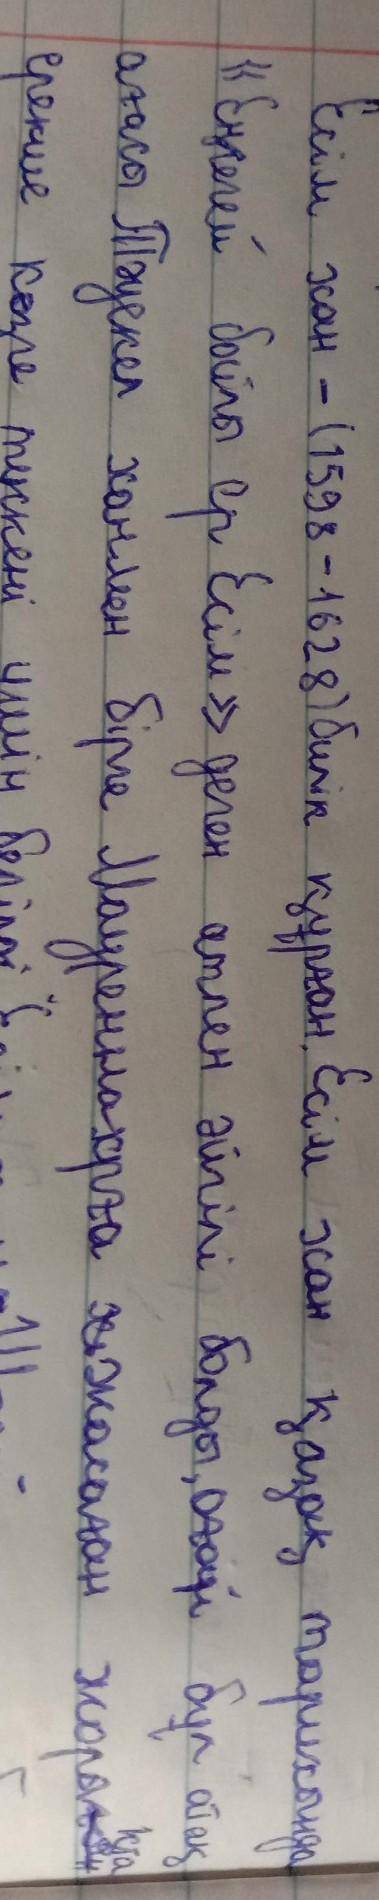 Есім хан – (1598-1628) билік құрған. Есім хан қазақ тарихында
«Еңсегей бойлы ер Есім» деген атпен әйгілі болды, оған бұл атақ
ағасы Тәуекел ханмен бірге Мауреннахрға жасаған жорықта
ерекше көзге түскені үшін белгілі